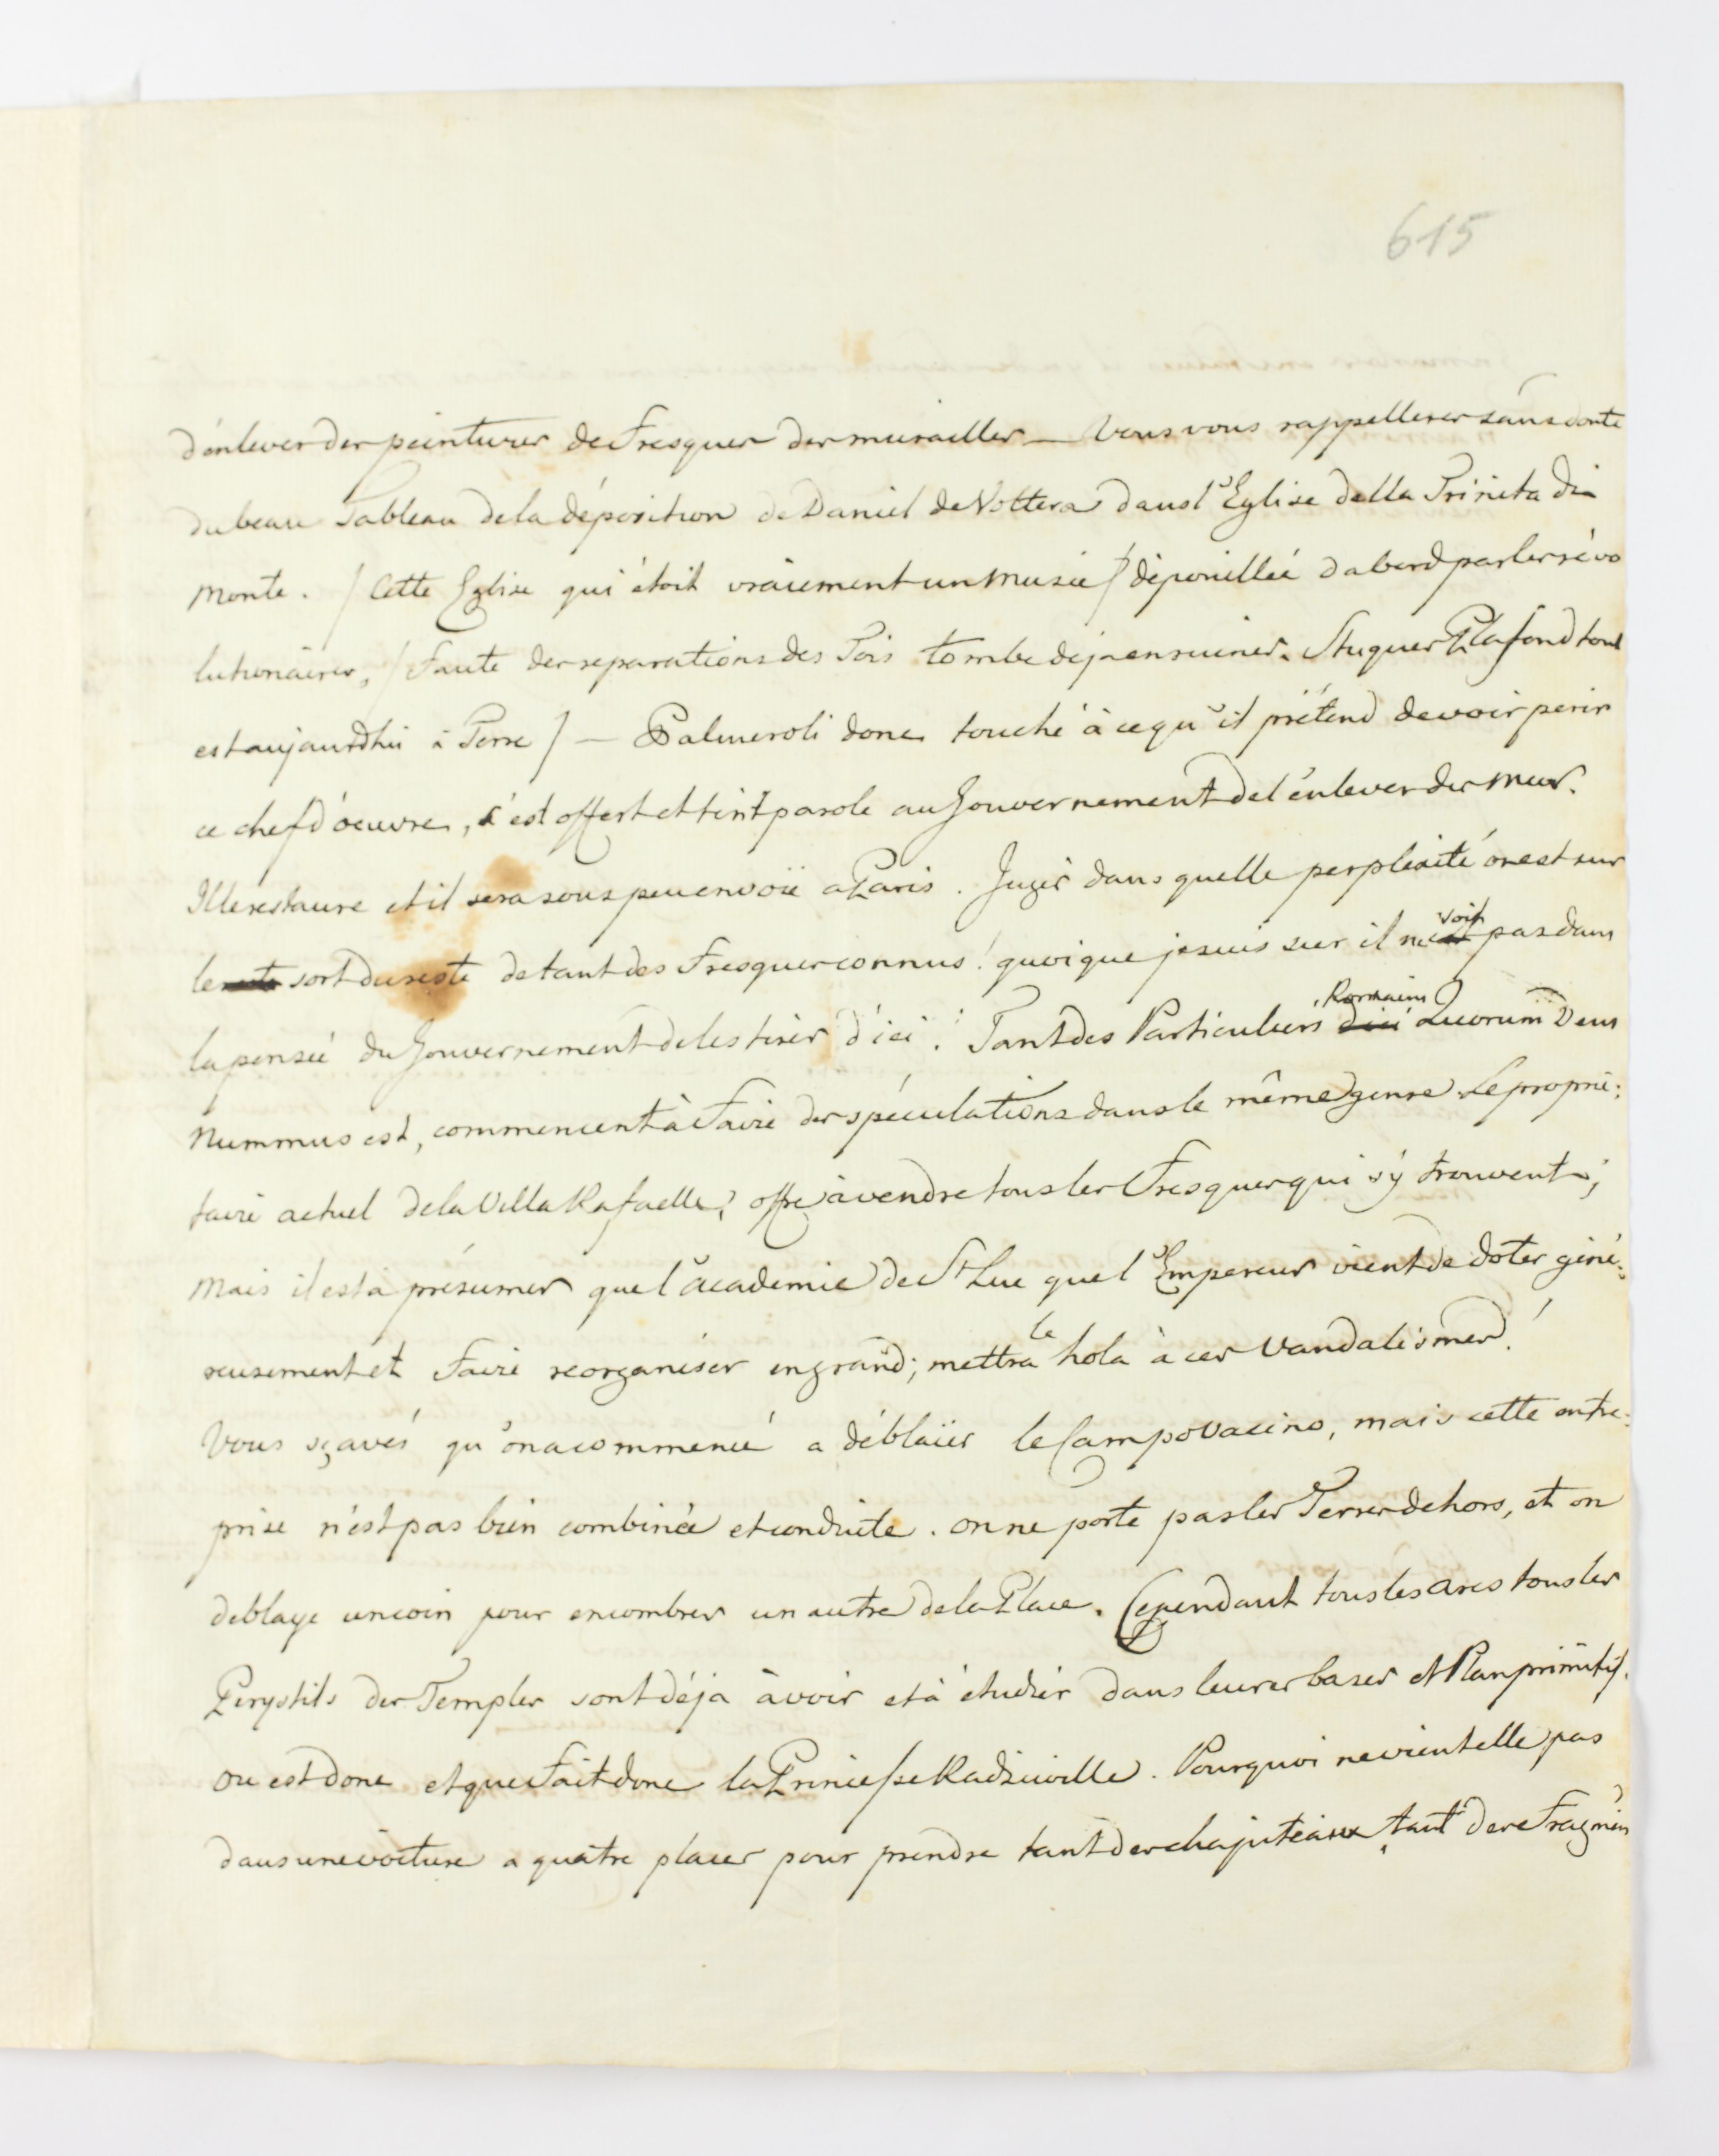 615
d'enlever des peintures de Fresques des murailles — Vous vous rappelleres sans doute
du beau Tableau de la déposition de Daniel de Voltera dans l'Eglise della Trinita di
Monte. / Cette Eglise qui étoit vraiement un Musée / dépouillée d'abord par les révo
lutionaires, / Faute des reparations des Tois tombe deja en ruines. Stuques Plafond tout
est aujourdhui à Terre / — Palmeroli donc touché à ce qu'il prétend devoir périr
ce chef d'oeuvre, s'est offert et tint parole au Gouvernement de l'enlever du Mur.
Il le restaure et il sera sous peu envoïé a Paris. Jugés dans quelle perplexité on est sur
le sort du reste de tant des Fresques connus! quoique je suis sur il n'e voit pas dans
la pensée du Gouvernement de les tirer d'ici. Tant des Particuliers Romains Quorum Deus
Nummus est, commencent à Faire des spéculations dans le même genre. Le proprié:
taire actuel de la Villa Rafaelle, offre à vendre tous les Fresques qui s'y trouvent;
Mais il est à présumer que l'academie de St Luc que l'Empereur vient de doter géné:
reusement et Faire reorganiser en grand; mettra le hola à ces Vandalismes!
Vous sçavés qu'on a commencé a déblaïer le Campo Vacino, mais cette entre:
prise n'est pas bien combinée et conduite. on ne porte pas les Terres dehors, et on
deblaye un coin pour encombrer un autre de la Place. Cependant tous les Arcs tous les
Perystils des Temples sont déja à voir et à étudier dans leures bases et Plan primitif.
Ou est donc et que Fait donc la Princesse Radziwille. Pourquoi ne vient elle pas
dans une voiture a quatre places pour prendre tant des chapiteaux, tant des Fragmen